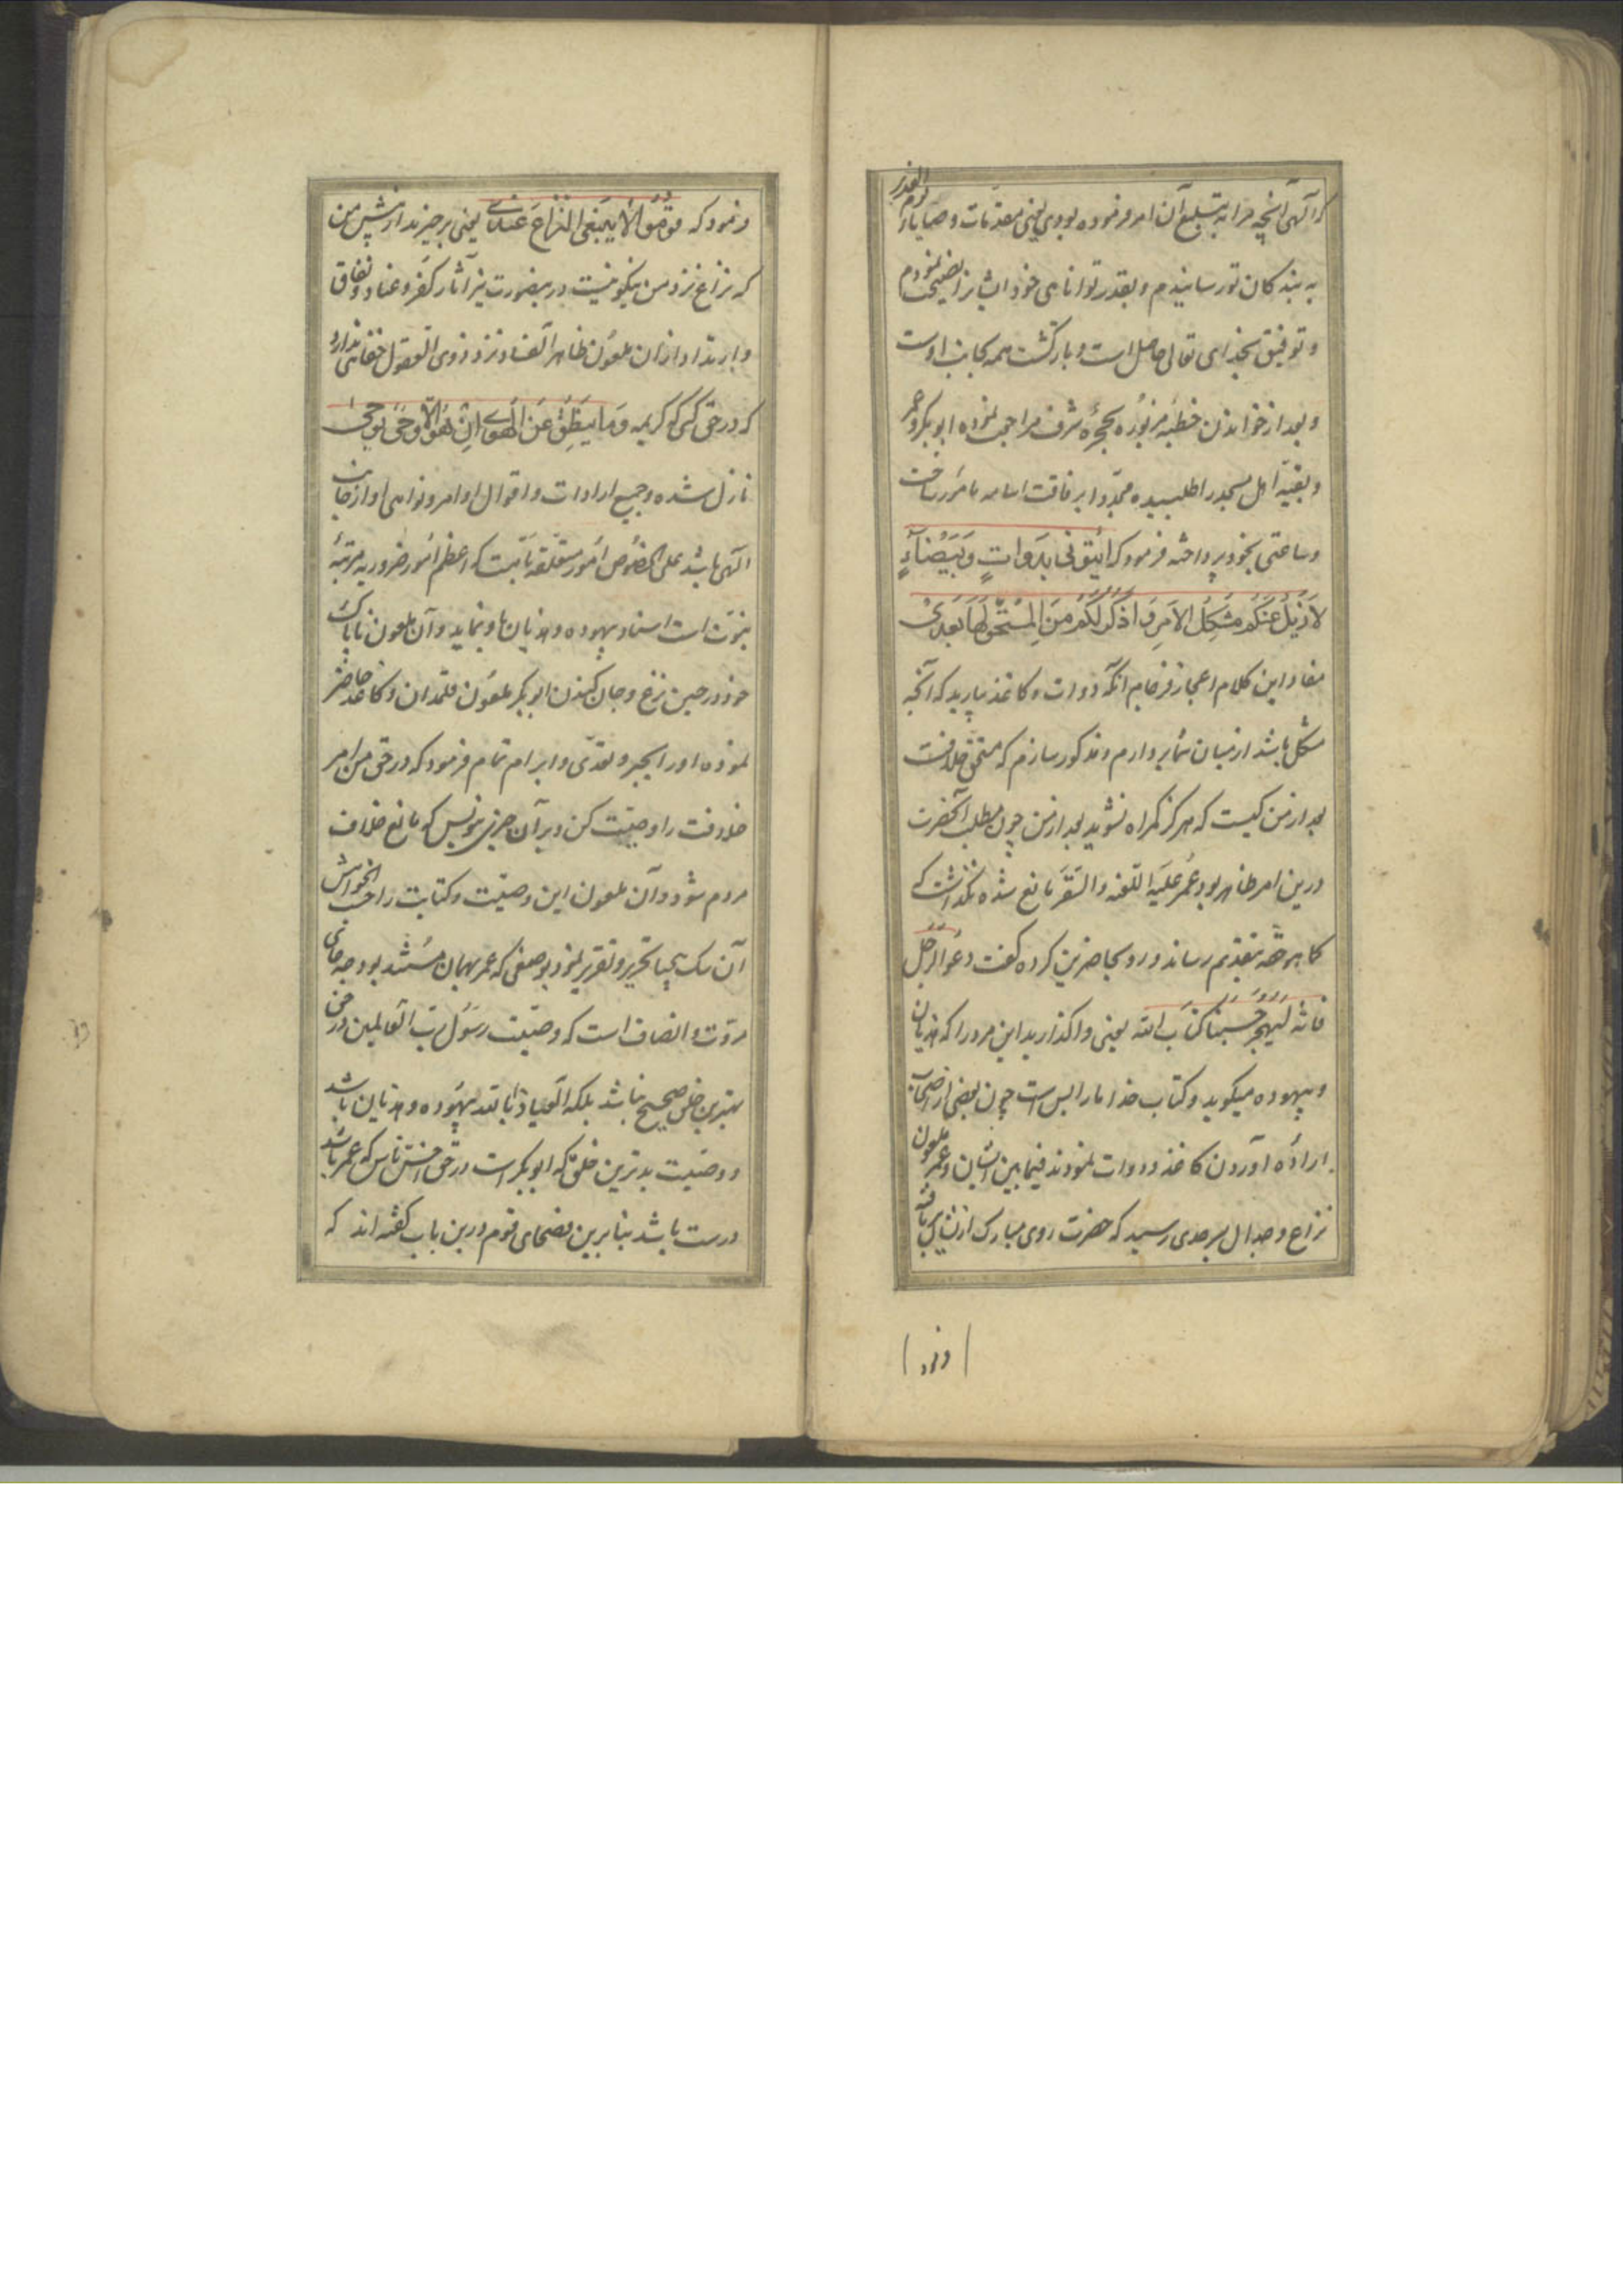 که الهی آنچه مرا به تبلیغ آن امر فرموده بودی یعنی مقدمات و وصایا یوم الغدیر
به بندگان تو رسانیدم و بقدر توانایی خود ایشانرا نصیحت نمودم
و توفیق بخدای تعالی حاصل است و بازگشت همه بجانب اوست
و بعد از خواندن خطبه مزبوره بحجره شرف مراجعت نموده ابوبکر و عمر
و بقیه اهل مسجد را طلبیده مجددا برفاقت اسامه مامور ساخت
و ساعتی بخود پرداخته فرمود که ائیتونی بدوات و بیضاء
لازیل عنکم مشکل الامر و اذکر لکم من المستحق لها بعدی
مفاد این کلام اعجاز فرجام آنکه دوات و کاغذ بیارید که آنچه
مشکل باشد از میان شما بردارم و مذکور سازم که مستحق خلافت
بعد از من کیست که هرگز گمراه نشوید بعد از من چون مطلب آنحضرت
درین امر ظاهر بود عمر علیه اللعنه و السقر مانع شده نگذاشت که
کما هو حقه بتقدیم رساند و رو بحاضرین کرده گفت دعوا الرجل
فانه لیهجر حسبنا کتاب الله یعنی واگذارید این مرد را که هذیان
و بیهوده میگوید و کتاب خدا ما را بس است چون بعضی از اصحاب
اراده آوردن کاغذ و دوات نمودند فیما بین ایشان و عمر ملعون
نزاع و جدال بسرحدی رسید که حضرت روی مبارک ازیشان بر تافته
فرمود که قوموا لا ینبغی النزاع عندی یعنی برخیزید از پیش من
که نزاع نزد من نیکو نیست درینصورت نیز آثار کفر و عناد و نفاق
و ارتداد از آن ملعون ظاهر الفساد نزد ذوی العقول خفائی ندارد
که در حق کسی که کریمه و ما ینطق عن الهوی ان هو الا وحی یوحی
نازل شده و جمیع ارادات و اقوال و اوامر و نواهی او از جانب
الهی باشد علی الخصوص امور متعلقه بامت که اعظم امور ضروریه مرتبه
نبوت است اسناد بیهوده و هذیان باو نماید و آن ملعون ناپاک
خود در حین نزع و جان کندن ابوبکر ملعون قلمدان و کاغذ حاضر
نموده او را بجبر و تعدی و ابرام تمام فرمود که در حق من امر
خلافت را وصیت کن و بر آن چیزی بنویس که مانع خلاف
مردم شود و آن ملعون این وصیت و کتابت را حسب الخواهش
آن سک بیحیا تحریر و تقریر نمود بوصفی که عمر بهمان مستند بود چه جای
مروت و انصاف است که وصیت رسول رب العالمین در حق
بهترین خلق صحیح نباشد بلکه العیاذ بالله بیهوده و هذیان باشد
و وصیت بدترین خلق که ابوبکر است در حق اخس ناس که عمر باشد
درست باشد بنابرین فصحای قوم درین باب گفته اند که